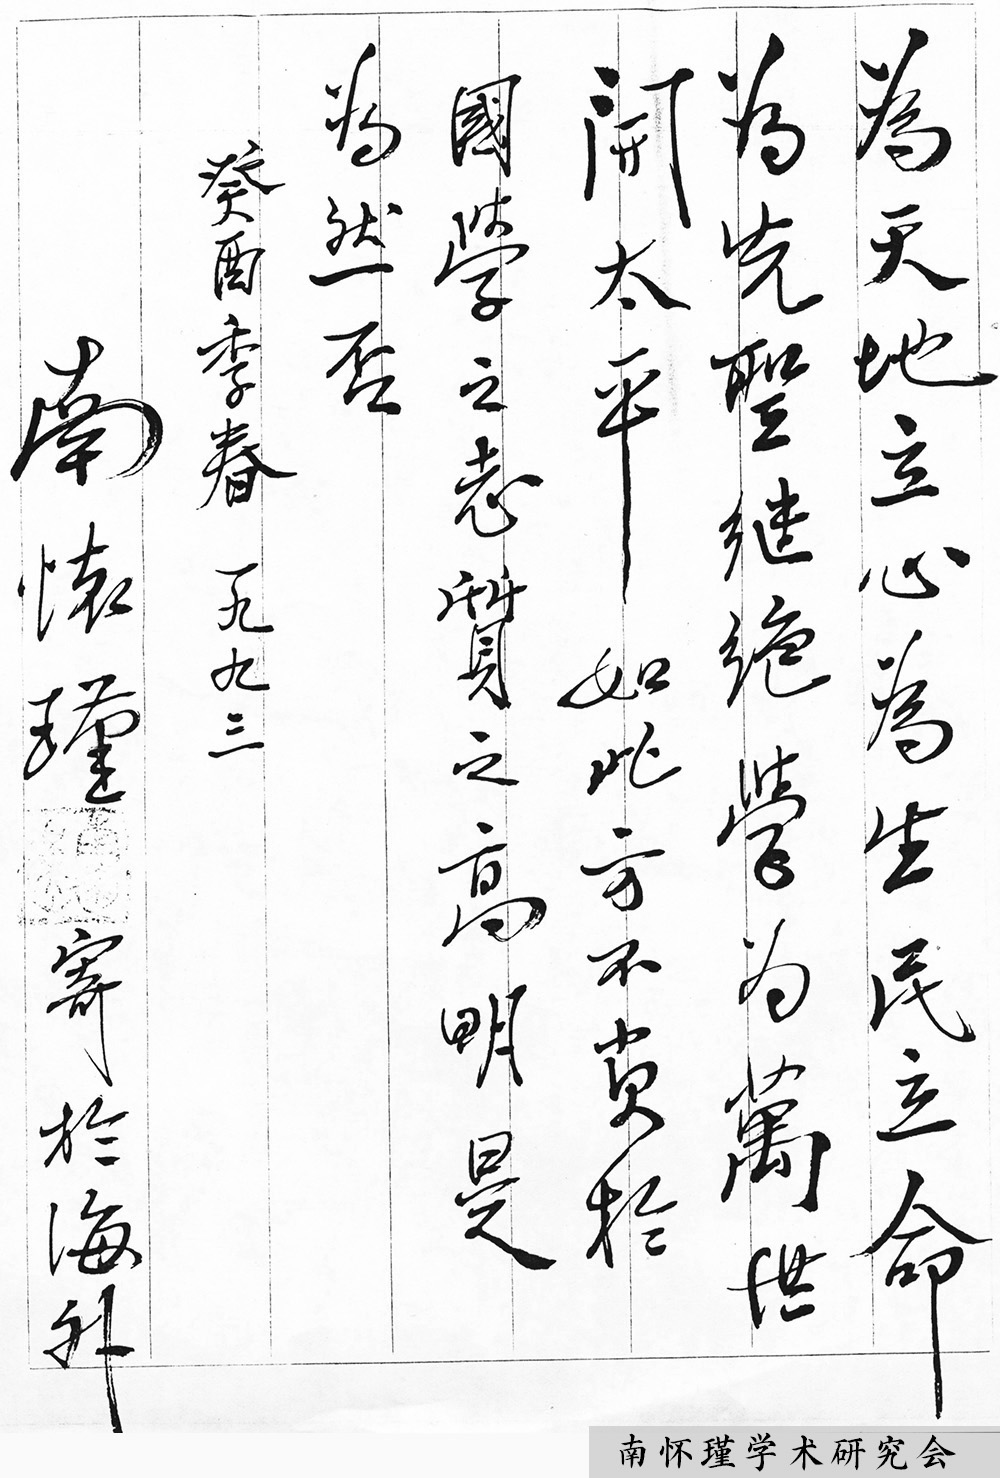 為天地立心為生民立命
為先聖继絶學為萬世
開太平 如此方不負於
國學之志質之高明是
為然否
癸酉季春 一九九三
南懷瑾 寄於海外
南怀瑾学术研究会